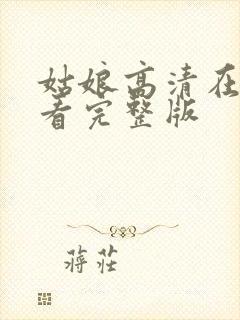 姑娘高清在
看完整版
蒋莊